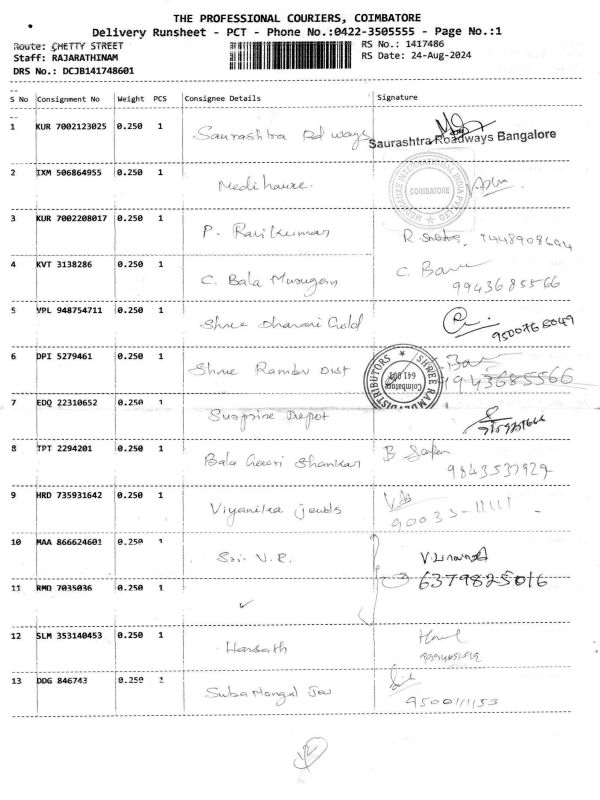 THE PROFESSIONAL COURIERS, COIMBATORE
Delivery Runsheet - PCT - Phone No.:0422-3505555 - Page No.:1
Route: CHETTY STREET
RS No.: 1417486
Staff: RAJARATHINAM
RS Date: 24-Aug-2024
DRS No.: DCJB141748601
S No Consignment No Weight PCS Consignee Details Signature
1 KUR 7002123025 0.250 1 Saurashtra Rd ways
Saurashtra Roadways Bangalore
2 IXM 506864955 0.250 1 Medihauxe
COIMBATORE
3 KUR 7002208017 0.250 1 P. Ravikumar
4 KVT 3138286 0.250 1 C. Bala Murugan
9943685566
5 VPL 948754711 0.250 1 Shree Dharani Gold
6 DPI 5279461 0.250 1 Shree Ramdev Dist
SHREE RAMDEV DISTRIBUTORS
Coimbatore
641 001
9943685566
7 EDQ 22310652 0.250 1 Surprise Depot
8 TPT 2294201 0.250 1 Bala Gowri Shankar
9843537929
9 HRD 735931642 0.250 1
90033-11111
10 MAA 866624601 0.250 1 Sri. V. R.
6379825016
11 RMD 7035036 0.250 1 ✓
12 SLM 353140453 0.250 1 Harsath
13 DDG 846743 0.250 1 Suba Mangal Jew
9500111153